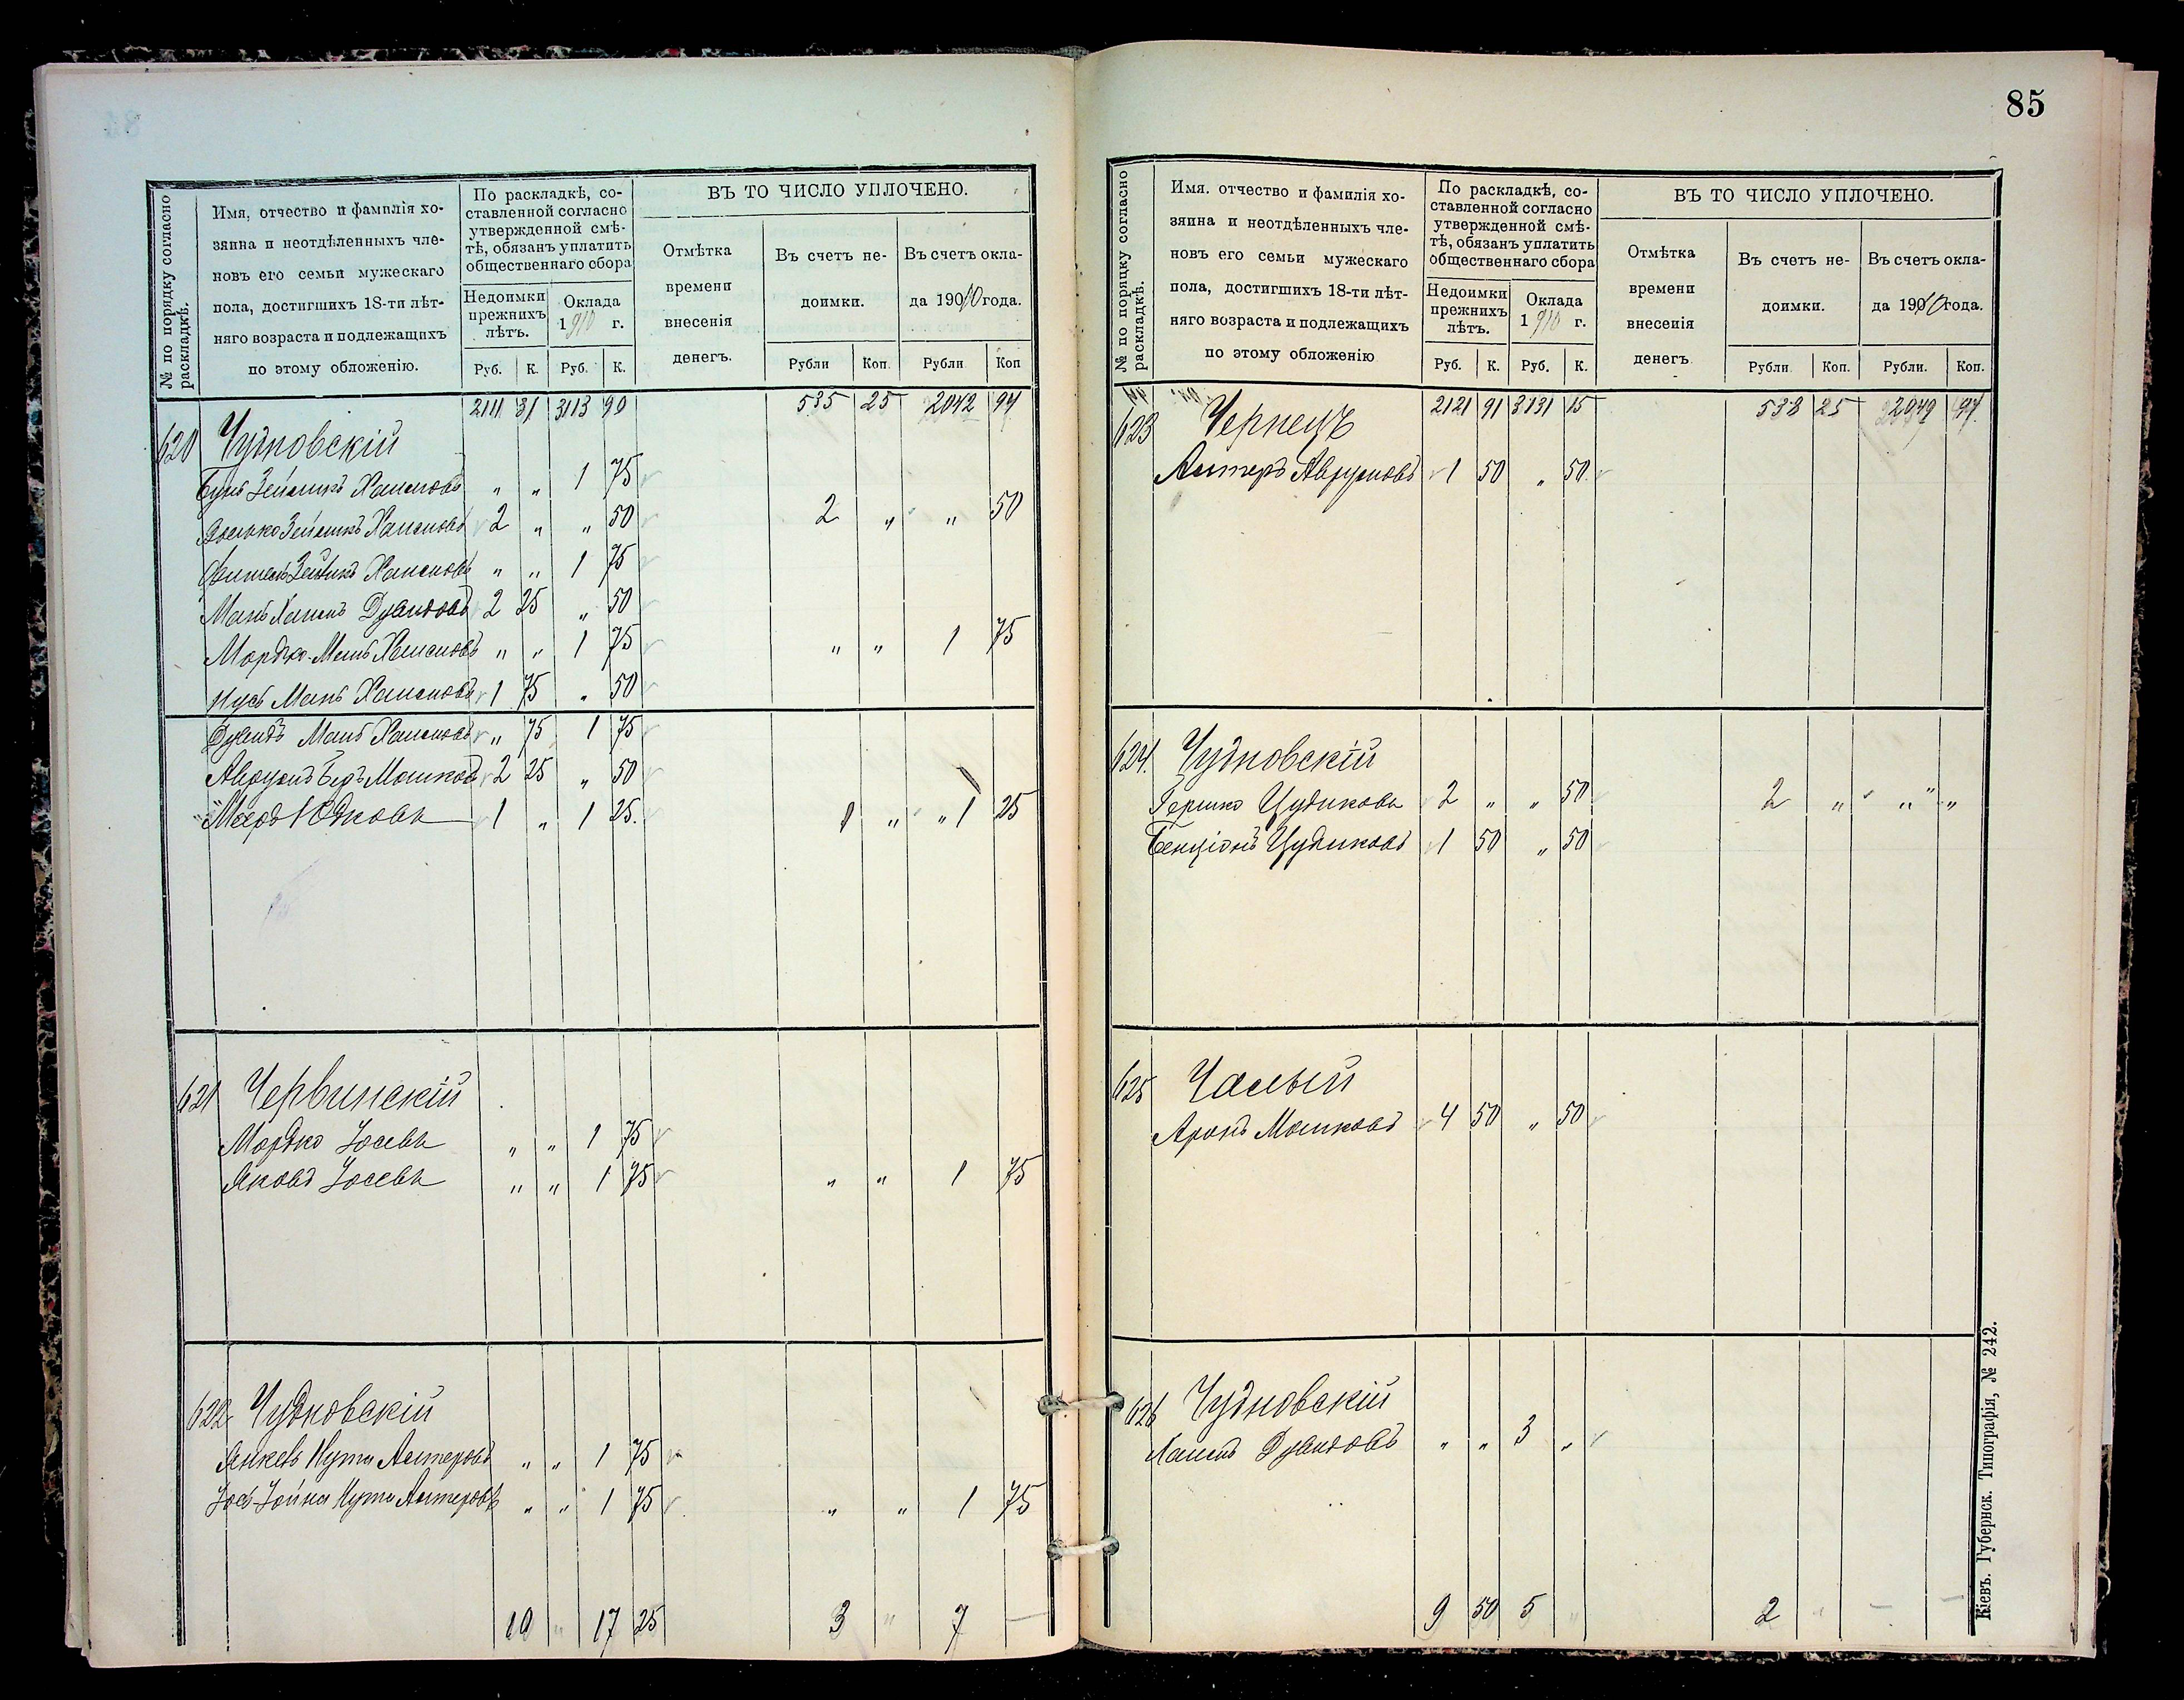 № по порядку согласно раскладкѣ.
Имя, отчество и фамилія хо-
зяина и неотдѣленныхъ чле-
новъ его семьи мужескаго
пола, достигшихъ 18-ти лѣт-
няго возраста и подлежащихъ
по этому обложенію.
По раскладкѣ, со-
ставленной согласно
утвержденной смѣ-
тѣ, обязанъ уплатить
общественнаго сбора
Недоимки прежнихъ лѣтъ.
Оклада 1910 г.
Руб. К. Руб. К.
ВЪ ТО ЧИСЛО УПЛОЧЕНО.
Отмѣтка времени внесенія денегъ.
Въ счетъ не-
доимки.
Въ счетъ окла-
да 1910 года.
Рубли Коп. Рубли Коп
2111 31 3113 90 535 25 2042 94
620 Чудновскій
Бунъ Зейликъ Хаимовъ " " 1 75
Волько Зейликъ Хаимовъ 2 " " 50 2 " " 50
Зейликъ Хаимовъ " " 1 75
Мань Хаимъ Дувидовъ 2 25 " 50
Мордко-Мань Хаимовъ " " 1 75 " " 1 75
Нусь Мань Хаимовъ 1 75 " 50
Дувидъ Мань Хаимовъ " 75 1 75
Аврумъ Беръ Мошковъ 2 25 " 50
Мееръ Юдковъ 1 " 1 25. 1 " " 1 25
621 Червинскій
Мордко Іосевъ " " 1 75
Яковъ Іосевъ " " 1 75 " " 1 75
622 Чудновскій
Янкевъ Нута Алтеровъ " " 1 75
Іось-Іойна Нута Алтеровъ " " 1 75 " " 1 75
10 " 17 25 3 " 7 —
85
№ по порядку согласно раскладкѣ.
Имя. отчество и фамилія хо-
зяина и неотдѣленныхъ чле-
новъ его семьи мужескаго
пола, достигшихъ 18-ти лѣт-
няго возраста и подлежащихъ
по этому обложенію
По раскладкѣ, со-
ставленной согласно
утвержденной смѣ-
тѣ, обязанъ уплатить
общественнаго сбора
Недоимки прежнихъ лѣтъ.
Оклада 1910 г.
Руб. К. Руб. К.
ВЪ ТО ЧИСЛО УПЛОЧЕНО.
Отмѣтка времени внесенія денегъ.
Въ счетъ не-
доимки.
Въ счетъ окла-
да 1910 года.
Рубли Коп. Рубли. Коп.
2121 91 3131 15 538 25 2049 94
623 Чернецъ
Алтеръ Аврумовъ 1 50 " 50
624. Чудновскій
Гершко Цудиковъ 2 " " 50 2 " " "
Бенціонъ Цудиковъ 1 50 " 50
625 Чалый
Аронъ Мошковъ 4 50 " 50
626 Чудновскій
Хаимъ Дувидовъ " " 3 "
9 50 5 " 2 " — —
Кіевъ. Губернск. Типографія, № 242.